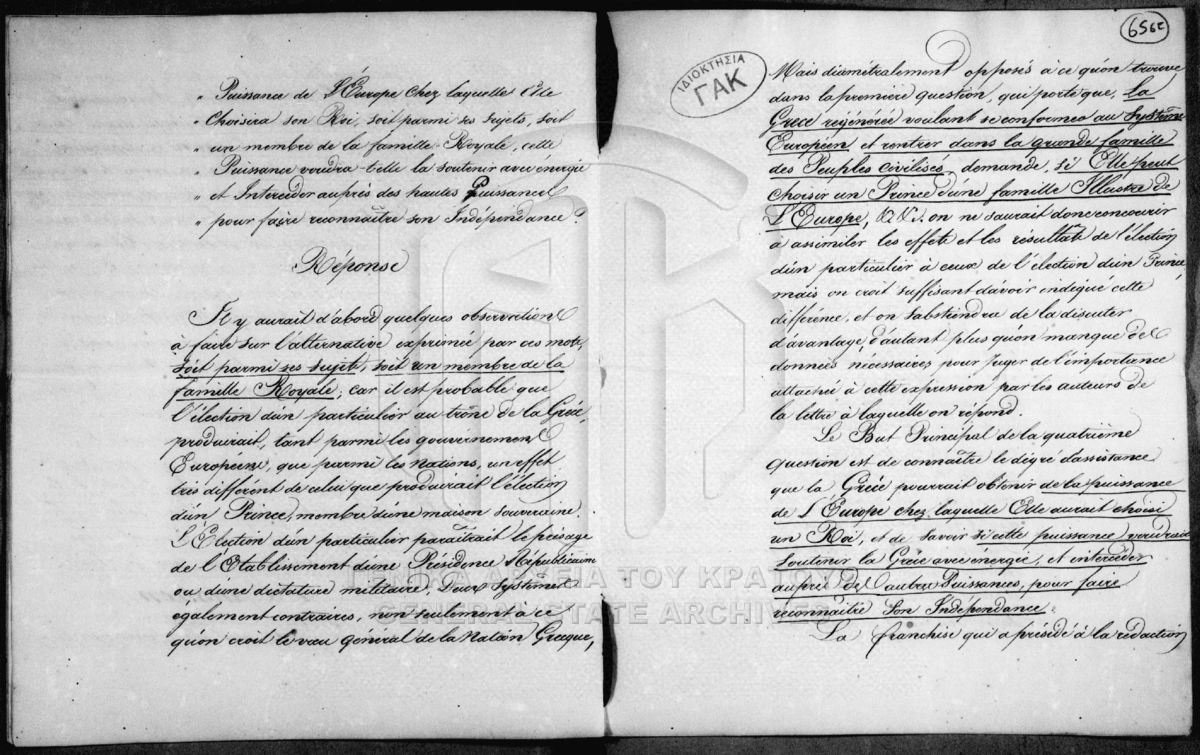 " Puissance de l'Europe chez laquelle Elle
" Choisira son Roi, soit parmi ses sujets, soit
un membre de la famille Royale, cette
Puissance voudra-t-elle la soutenir avec énergie
" et Interceder auprès des hautes Puissances
" pour faire reconnaître son Indépendance?
Réponse
Il y aurait d'abord quelques observations
à faire sur l'alternative exprimée par ces mots,
soit parmi ses sujets, soit un membre de la
famille Royale; car il est probable que
l'élection d'un particulier au trône de la Grèce
produirait, tant parmi les gouvernemens
Européens, que parmi les nations, un effet
très différent de celui que produirait l'élection
d'un Prince, membre d'une maison souveraine.
L'Election d'un particulier paraîtrait le présage
de l'Etablissement d'une Présidence Républicaine
ou d'une dictature militaire, Deux systèmes
également contraires, non seulement à ce
qu'on croit le vœu général de la Nation Grecque,
6562
ΙΔΙΟΚΤΗΣΙΑ
ΓΑΚ
Mais diamétralement opposés à ce qu'on trouve
dans la première question, qui porte que, la
Grèce regénérée voulant se conformer au Système
Européen et rentrer dans la grande famille
des Peuples civilisés, demande, si Elle peut
choisir un Prince d'une famille Illustre de
l'Europe, &.&.&. on ne saurait donc concourir
à assimiler les effets et les résultats de l'élection
d'un particulier à ceux de l'élection d'un Prince,
mais on croit suffisant d'avoir indiqué cette
différence, et on s'abstiendra de la discuter
d'avantage, d'autant plus qu'on manque des
données nécessaires pour juger de l'importance
attachée à cette expression par les auteurs de
la lettre à laquelle on répond.
Le But Principal de la quatrième
question est de connaître le dégré d'assistance
que la Grèce pourrait obtenir de la puissance
de l'Europe chez laquelle Elle aurait choisi
un Roi, et de savoir si cette puissance voudrait
soutenir la Grèce avec énergie, et interceder
auprès des autres Puissances, pour faire
reconnaître son Indépendance.
La franchise qui a présidé à la rédaction
ΓΕΝΙΚΑ ΑΡΧΕΙΑ ΤΟΥ ΚΡΑΤΟΥΣ
GENERAL STATE ARCHIVES